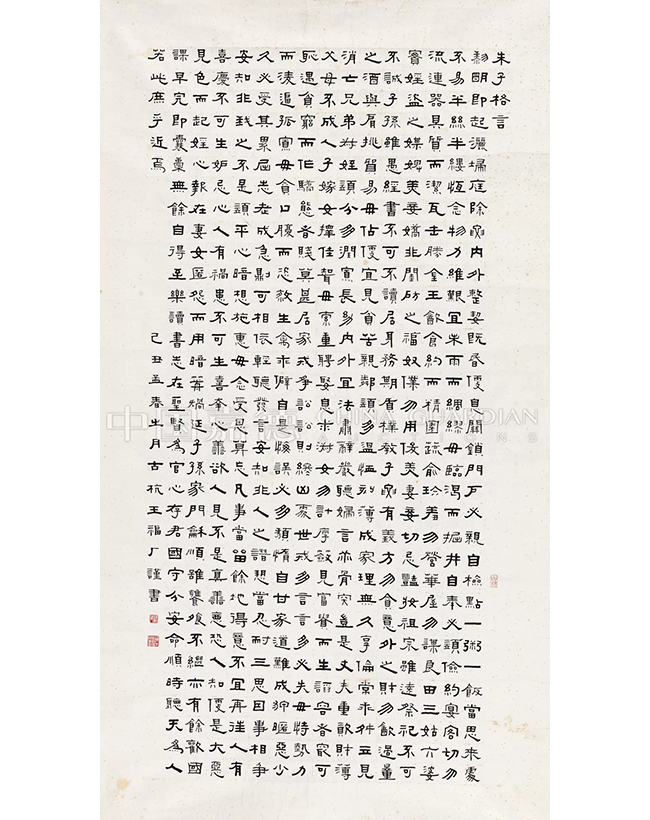 朱子格言
黎明即起灑埽庭除要內外整絜既昏便息關鎖門戶必親自檢點一粥一飯當思來處
不易半絲半縷恆念物力維艱宜未雨而綢繆毋臨渴而掘井自奉必須儉約宴客切勿
流連器具質而潔瓦缶勝金玉飲食約而精園蔬愈珍羞勿營華屋勿謀良田三姑六婆
實婬盜之媒婢美妾嬌非閨房之福奴僕勿用俊美妻妾切忌豔妝祖宗雖遠祭祀不可
不誠子孫雖愚經書不可不讀居身務期質樸教子要有義方勿貪意外之財勿飲過量
之酒與肩挑貿易毋佔便宜見貧苦親鄰須多溫恤刻薄成家理無久享倫常乖舛立見
消亡兄弟叔姪須分多潤寡長幼內外宜法肅辭嚴聽婦言乖骨肉豈是丈夫重貲財薄
父母不成人子嫁女擇佳壻毋索重聘娶媳求淑女勿計厚奩見富貴而生諂容者最可
恥遇貧窮而作驕態者賤莫甚居家戒爭訟訟則終凶處世戒多言言多必失毋恃勢力
而淩逼孤寡毋貪口腹而恣殺生禽乖僻自是悔誤必多頹惰自甘家道難成狎暱惡少
久必受其累屈志老成急則可相依輕聽發言安知非人之譖愬當忍耐三思因事相爭
安知非我之不是須平心暗想施惠毋念受恩莫忘凡事當留餘地得意不宜再往人有
喜慶不可生妒忌心人有禍患不可生喜幸心善欲人見不是真善惡恐人知便是大惡
見色而起婬心報在妻女匿怨而用暗箭禍延子孫家門龢順雖饔飧不繼亦有餘歡國
課早完即囊橐無餘自得至樂讀書志在聖賢為官心存君國守分安命順時聽天為人
若此庶乎近焉
己丑孟春之月古杭王福厂謹書
中国嘉德 CHINA GUARDIAN